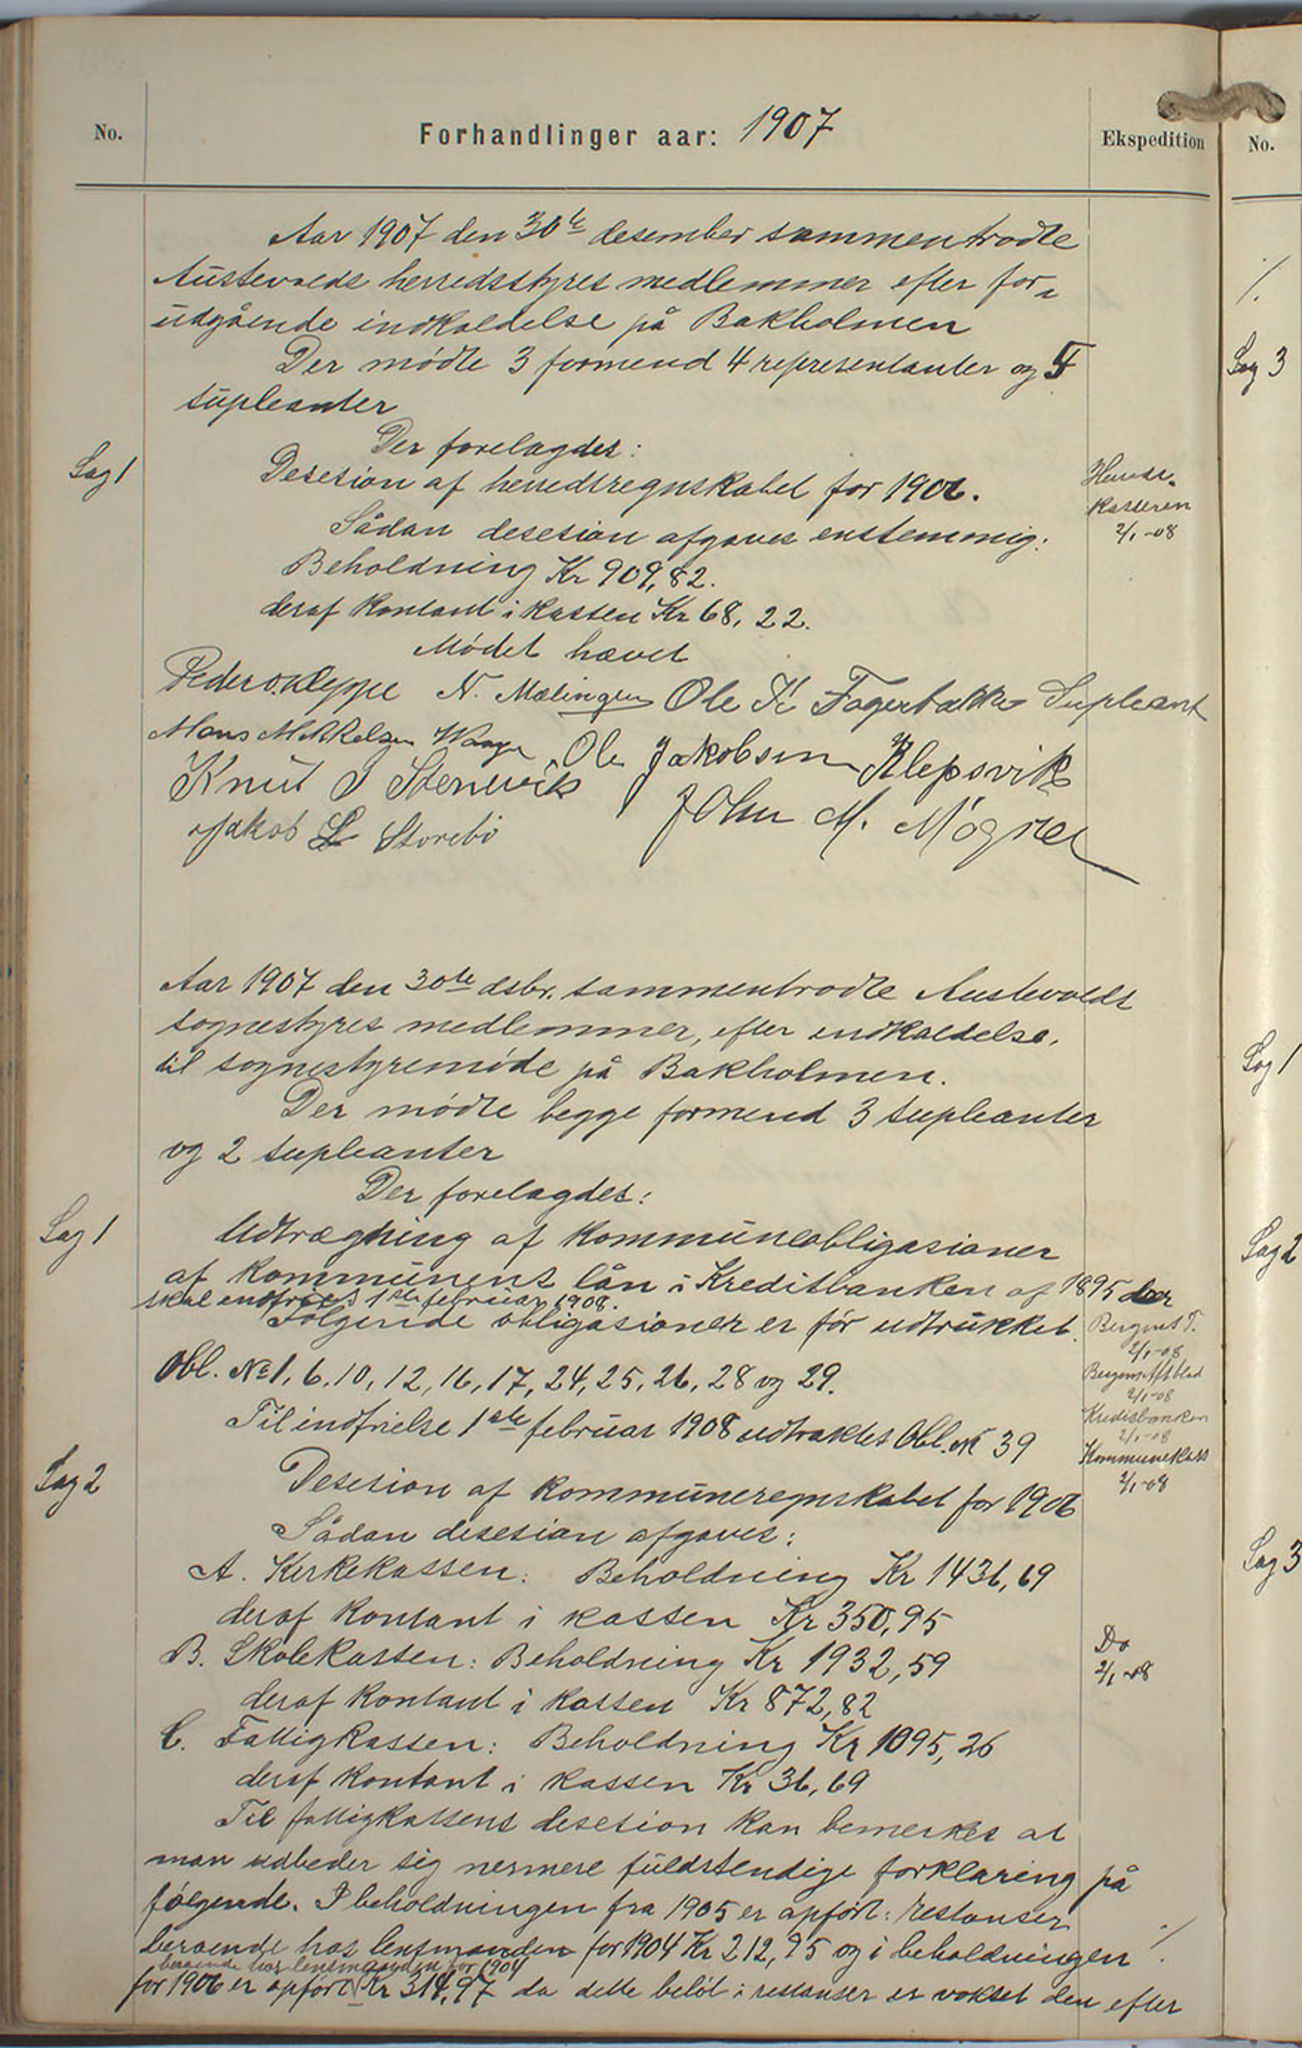 No.
Forhandlinger aar: 1907
Ekspedition
No.
Aar 1907 den 30te desember sammentrådte
Austevolds herredsstyres medlemmer efter for-
udgående indkaldelse på Bakholmen
Der mødte 3 formend 4 representanter og 5
supleanter
Der forelagdes:
Sag 1
Desesion af herredsregnskabet for 1906.
Herreds-
kasseren
2/1-08
Sådan desesion afgaves enstemmig:
Beholdning Kr 909,82.
deraf kontant i kassen Kr 68,22.
Mødet hævet
Peder O. Kleppe N. Mælingen Ole K Fagerbakke Supleant
Mons Mikkelsen Waage Ole Jakobsen Klepsvik
Knut J Stenevik
John M. Møgster
Jakob L Storebø
Aar 1907 den 30te dsbr. sammentrådte Austevolds
sognestyres medlemmer, efter indkaldelse,
til sognestyremøde på Bakholmen.
Der mødte begge formend 3 supleanter
og 2 supleanter
Der forelagdes:
Sag 1
Udtrægning af kommuneobligasioner
af kommunens lån i Kreditbanken af 1895 der
skal endfries 1ste februar 1908.
Følgende obligasioner er før udtrukket.
Bergens T.
2/1-08
Obl. No 1, 6, 10, 12, 16, 17, 24, 25, 26, 28 og 29.
Bergens Aftblad
2/1-08
Kreditbanken
2/1-08
Til indfrielse 1ste februar 1908 udtraktes Obl. No 39
Kommunekass
2/1-08
Sag 2
Desesion af kommuneregnskabet for 1906
Sådan desesion afgaves:
A. Kirkekassen: Beholdning Kr 1436,69
deraf kontant i kassen Kr 350,95
B. Skolekassen: Beholdning Kr 1932,59
Do
2/1-08
deraf kontant i kassen Kr 872,82
C. Fattigkassen: Beholdning Kr 1095,26
deraf kontant i kassen Kr 36,69
Til fattigkassens desesion kan bemerkes at
man udbeder sig nermere fuldstendige forklaring på
følgende. I beholdningen fra 1905 er opført: restanser
beroende hos lensmanden for 1904 Kr 212,95 og i beholdningen ./.
beroende hos lensmanden for 1904
for 1906 er opført Kr 314,97 da dette beløb i restanser er vokset den efter
./.
Sag 3
Sag 1
Sag 2
Sag 3